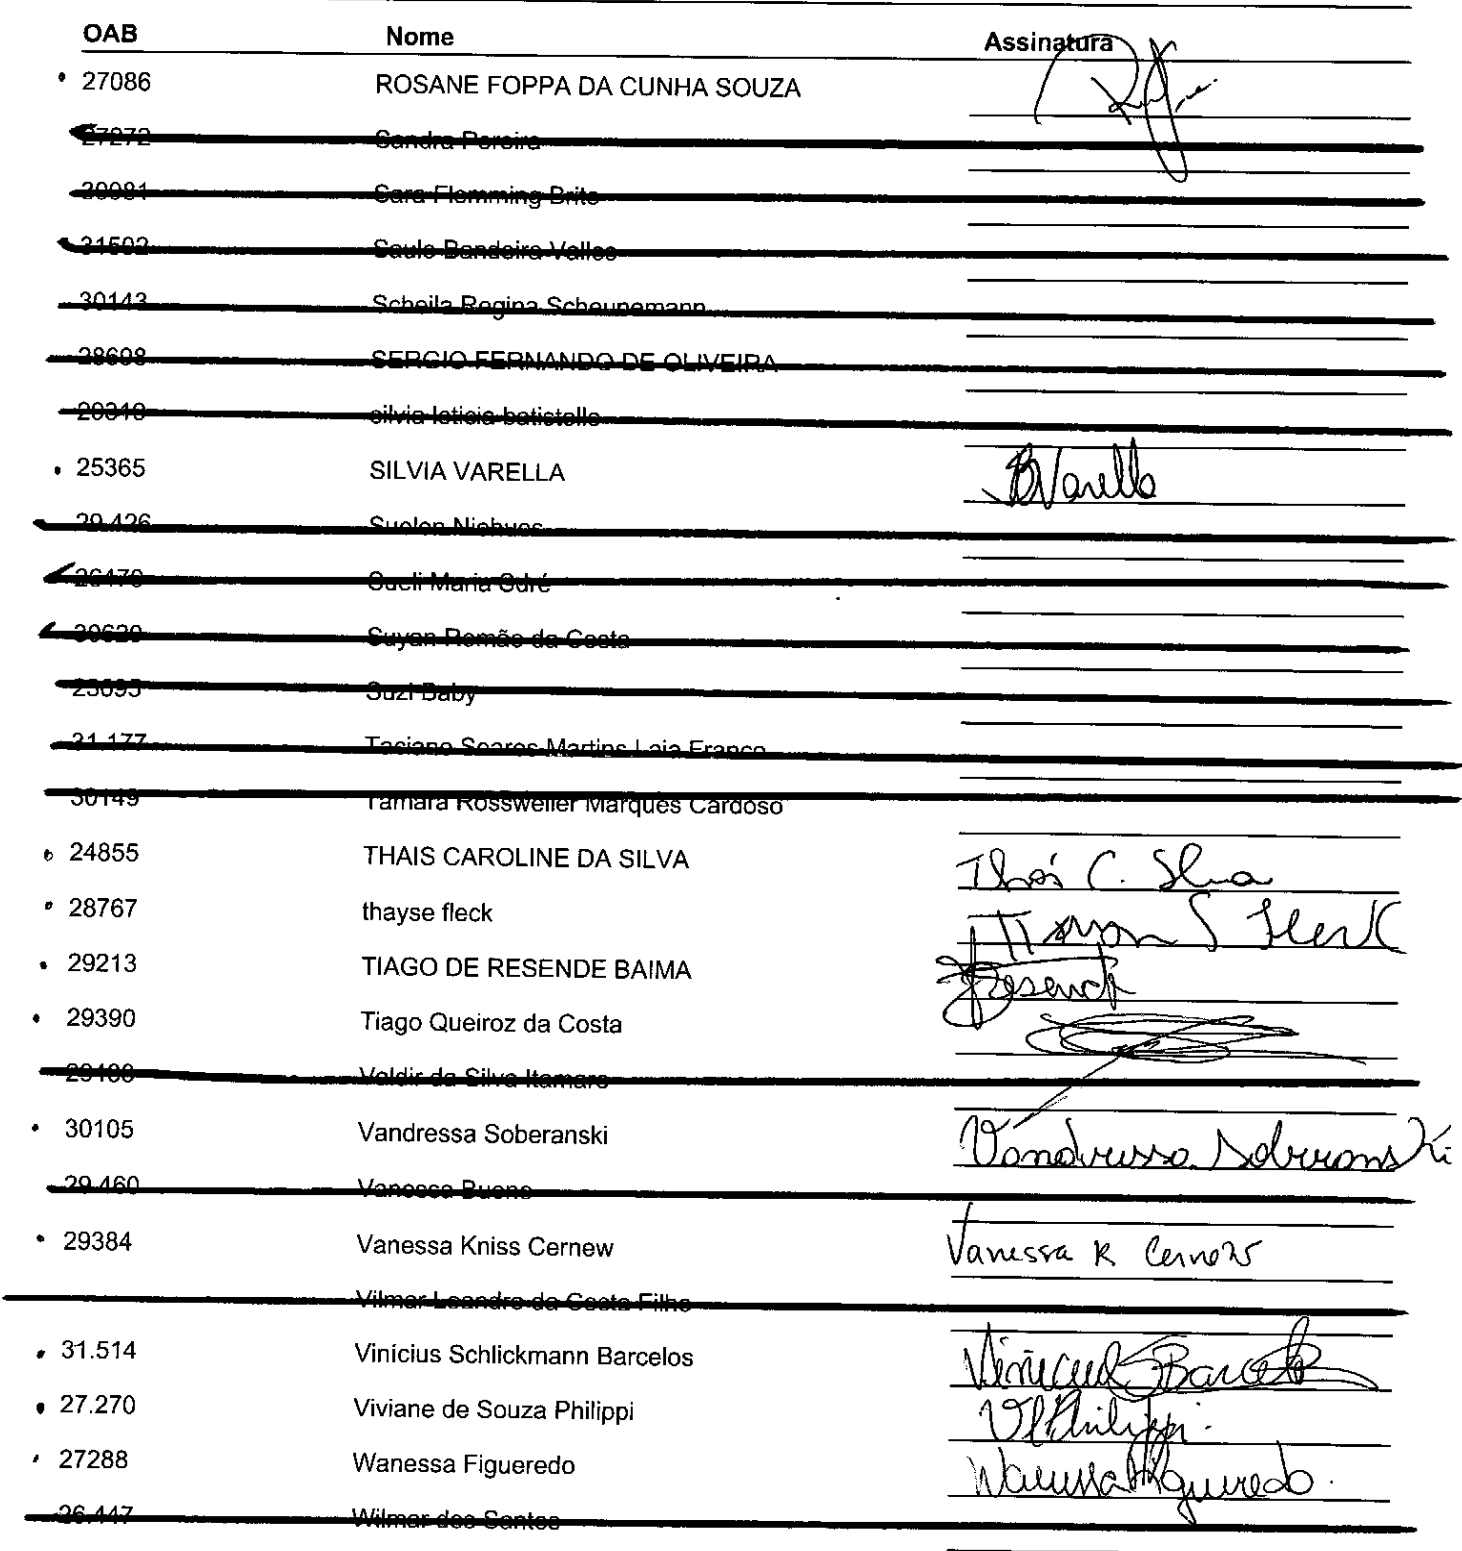 OAB Nome Assinatura
27086 ROSANE FOPPA DA CUNHA SOUZA
27272 Sandra Pereira
Sara Flemming Brito
31502 Saulo Bandeira
30143 Scheila Regina Scheunemann
28698 SERGIO FERNANDO DE OLIVEIRA
silvia leticia
25365 SILVIA VARELLA SBVarella
29.426 Suelen Niehues
26470 Sueli Maria
Suyan Romão da Costa
Suzi Baby
31.177 Soares Martins Laia Franco
30149 Tamara Marques Cardoso
24855 THAIS CAROLINE DA SILVA Thaís C. Silva
28767 thayse fleck
29213 TIAGO DE RESENDE BAIMA Resende
29390 Tiago Queiroz da Costa
Valdir da Silva Itamaro
30105 Vandressa Soberanski Vandressa Soberanski
29.460 Vanessa Bueno
29384 Vanessa Kniss Cernew Vanessa K Cernew
Vilmar Leandro da Costa Filho
31.514 Vinícius Schlickmann Barcelos Vinicius S Barcelos
27.270 Viviane de Souza Philippi VPhilippi
27288 Wanessa Figueredo Wanessa Figueredo
26.447 Wilmar dos Santos